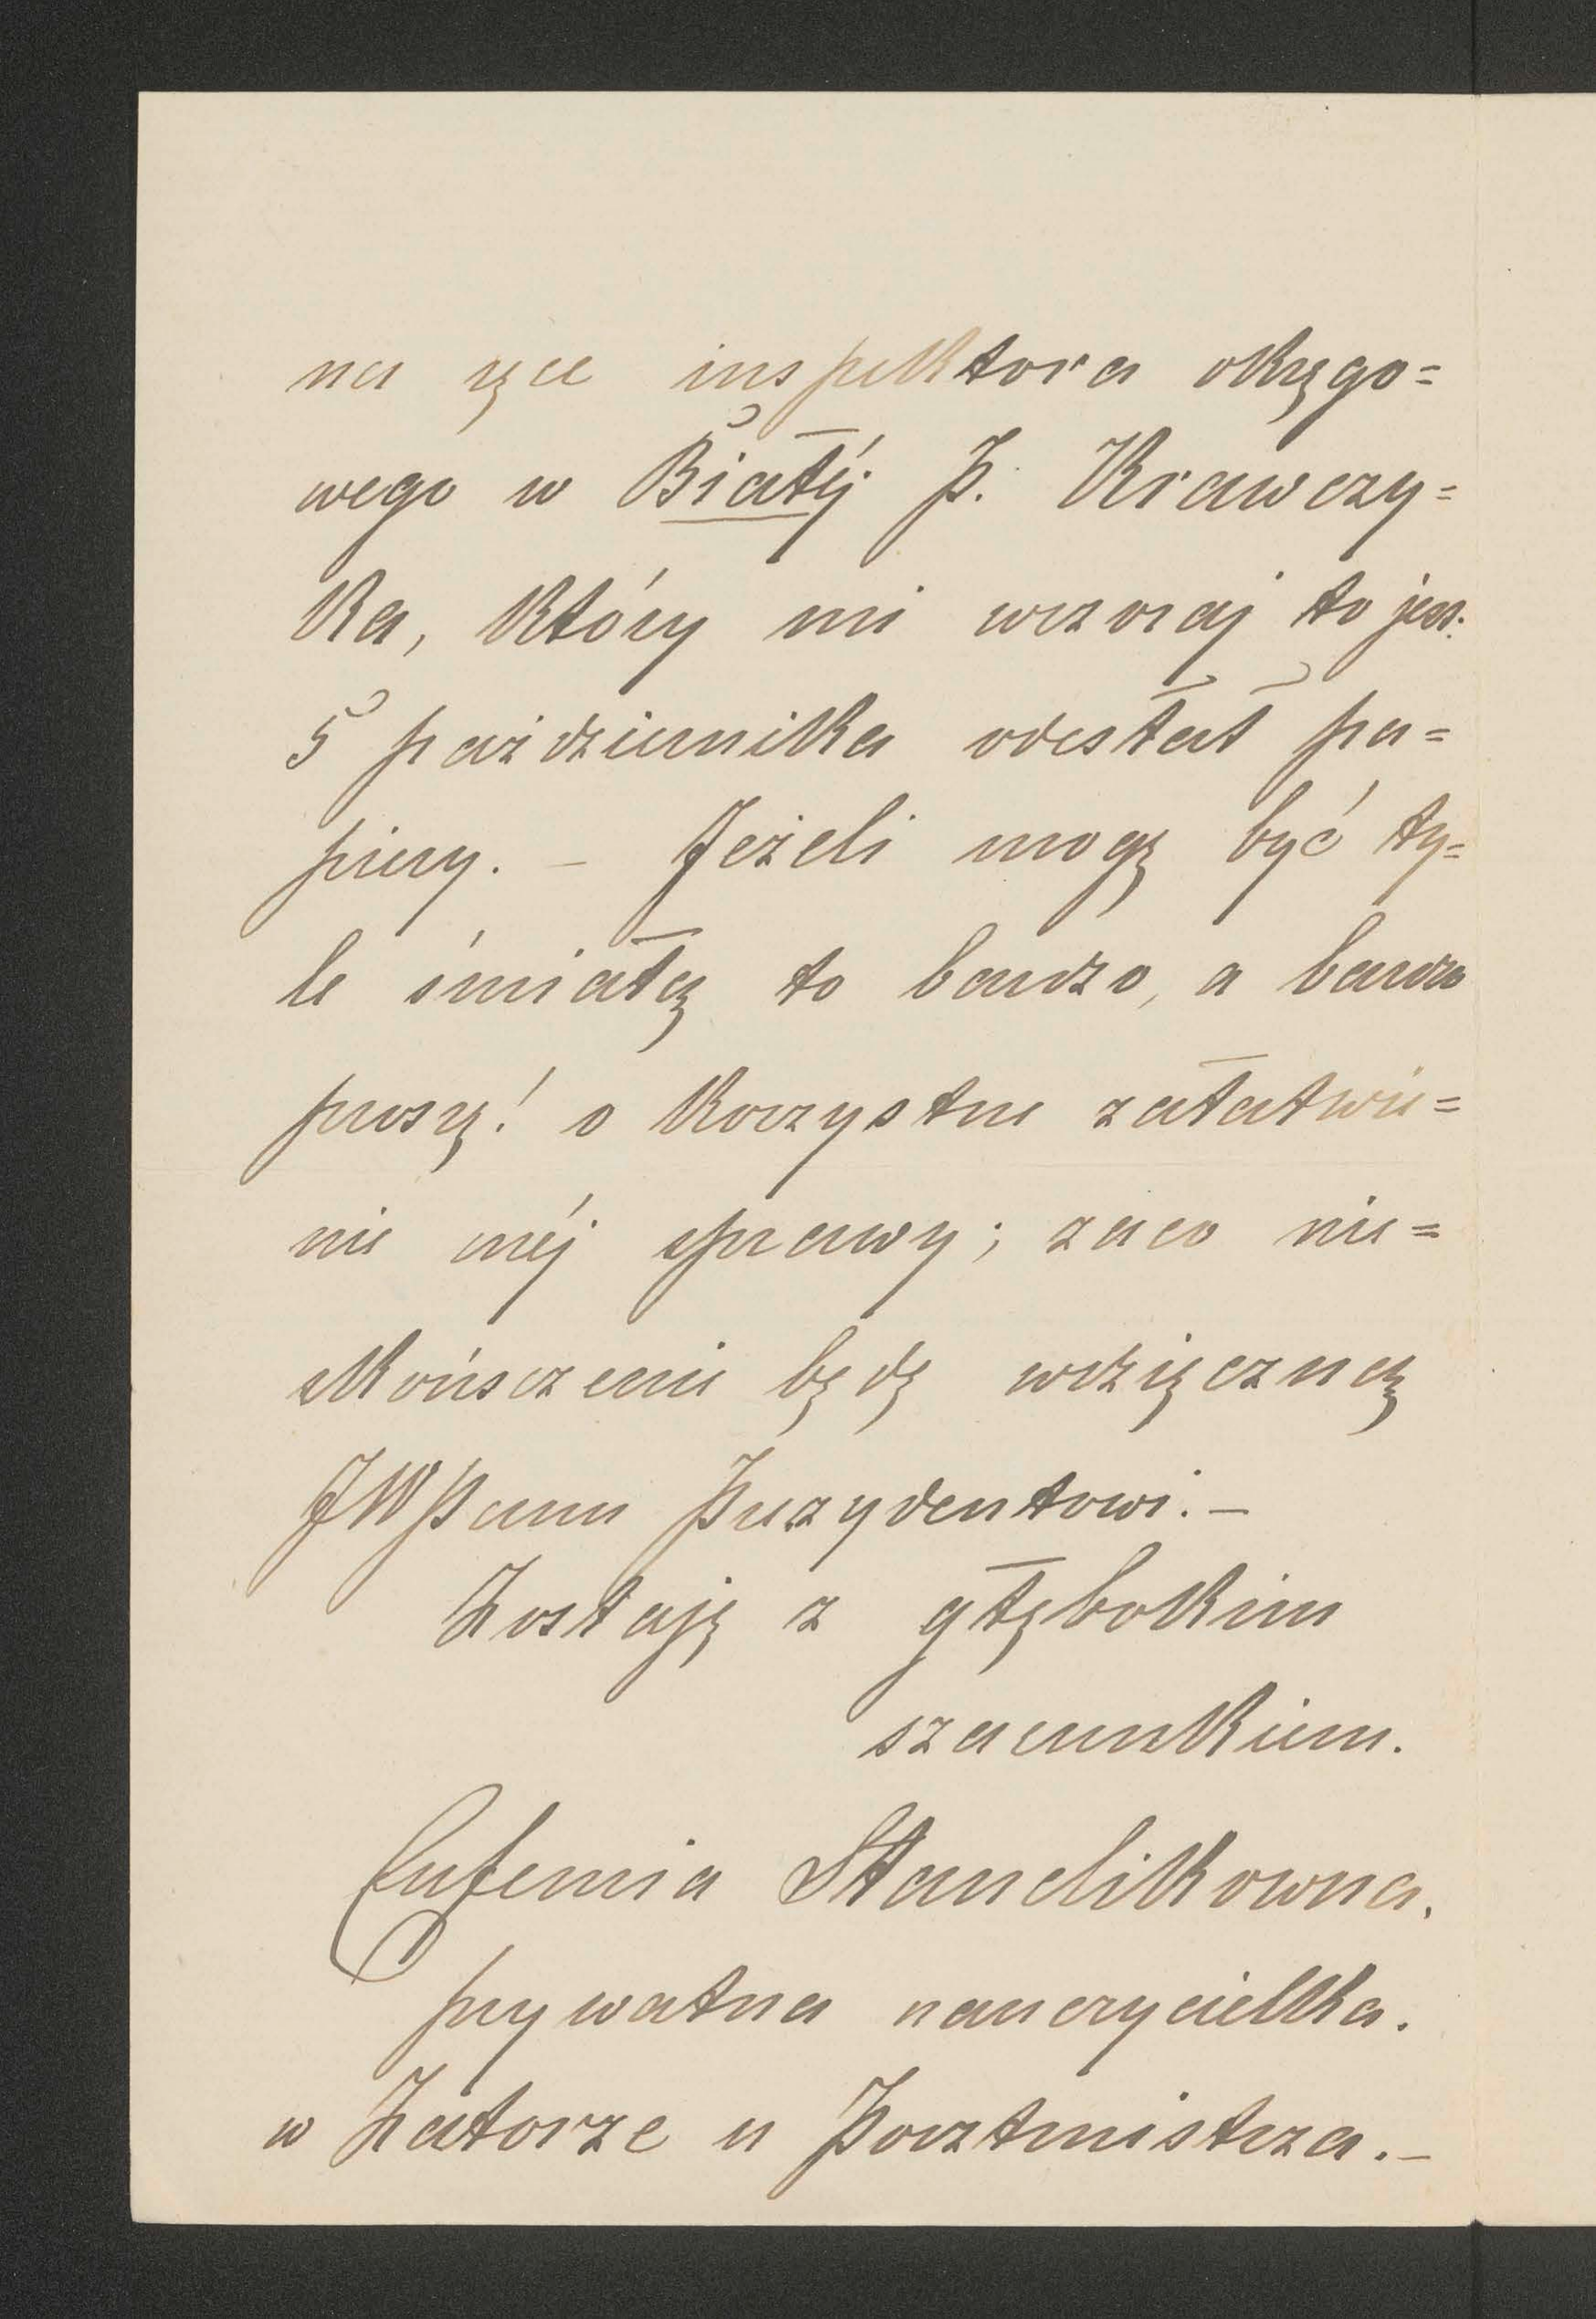 na ręce inspektora okręgo=
wego w Białéj P. Krawczy=
ka, który mi wczoraj to jest.
5 października odesłał pa=
piery. – Jeżeli mogę być ty=
le śmiałą to bardzo, a bardzo
proszę! o korzystne załatwie=
nie méj sprawy; zaco nie=
skończenie będę wdzięczną
JWPanu Prezydentowi. –
Zostaję z głębokim
szacunkiem.
Eufemia Stanclikowna.
prywatna nauczycielka.
w Zatorze u Pocztmistrza. –